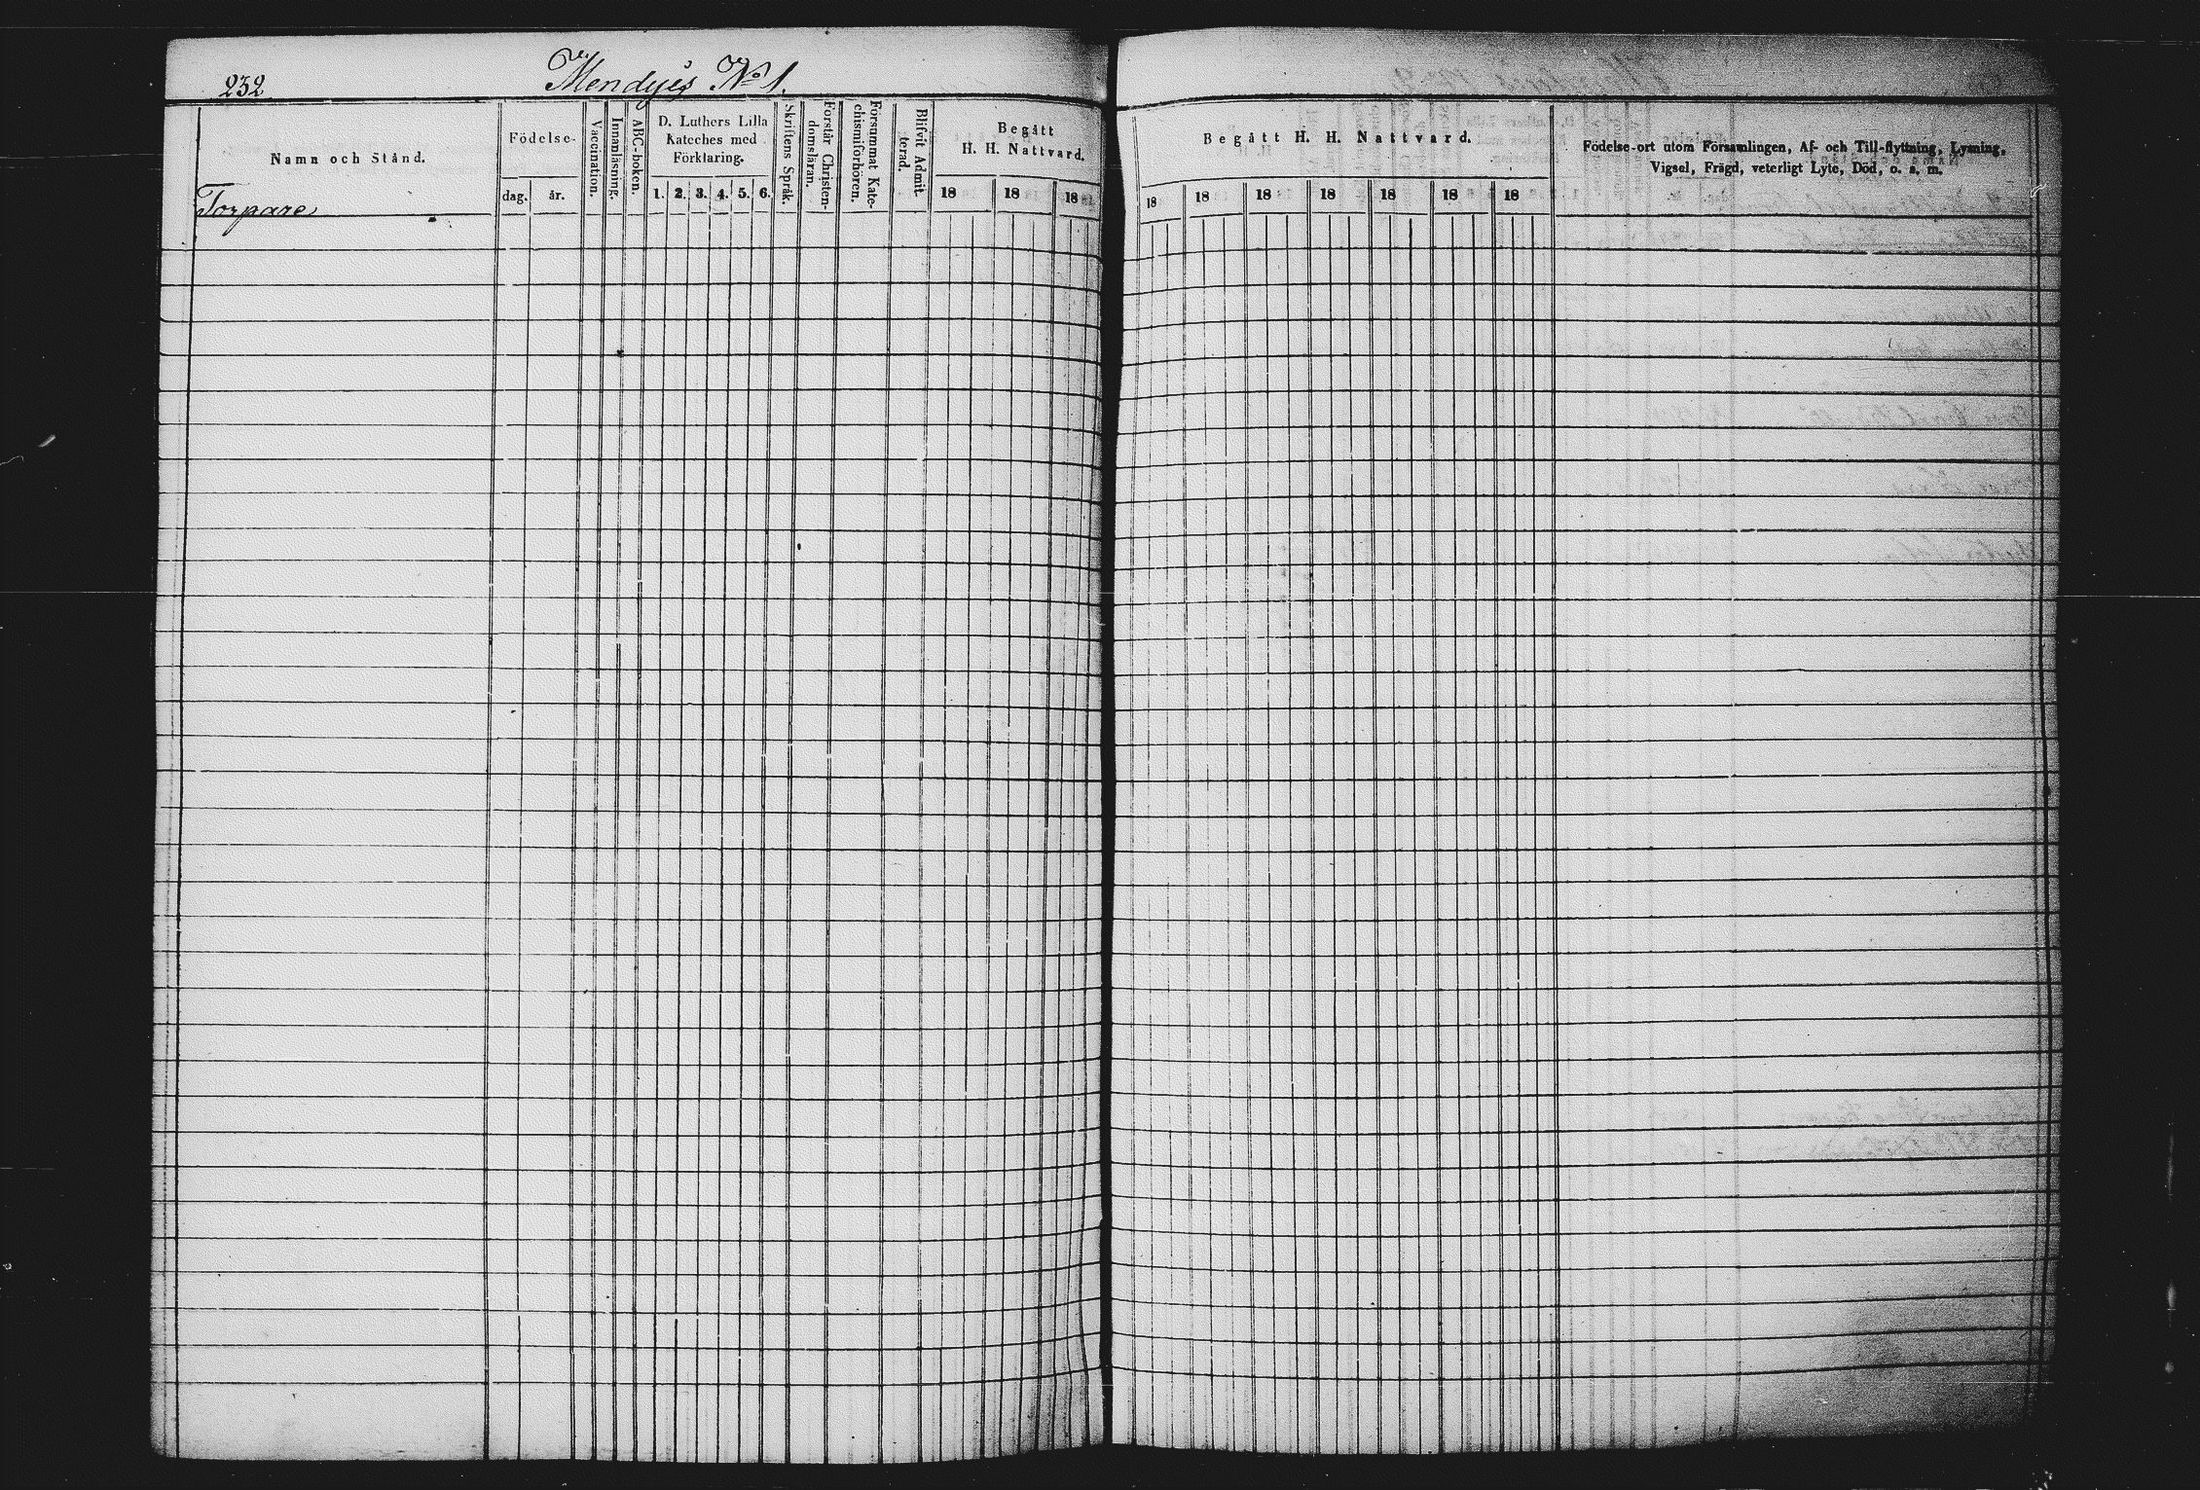 232
Mendyis No 1.
Namn och Stånd.
Födelse-
dag. år.
Vaccination.
Innanläsning.
ABC-boken.
D. Luthers Lilla
Kateches med
Förklaring.
1. 2. 3. 4. 5. 6.
Skriftens Språk.
Förstår Christen-
domsläran.
Försummat Kate-
chismiförhören.
Blifvit Admit-
terad.
Begått
H. H. Nattvard.
18 18 18
Torpare
Begått H. H. Nattvard.
18 18 18 18 18 18 18
Födelse-ort utom Församlingen, Af- och Till-flyttning, Lysning,
Vigsel, Frägd, veterligt Lyte, Död, o. s. m.